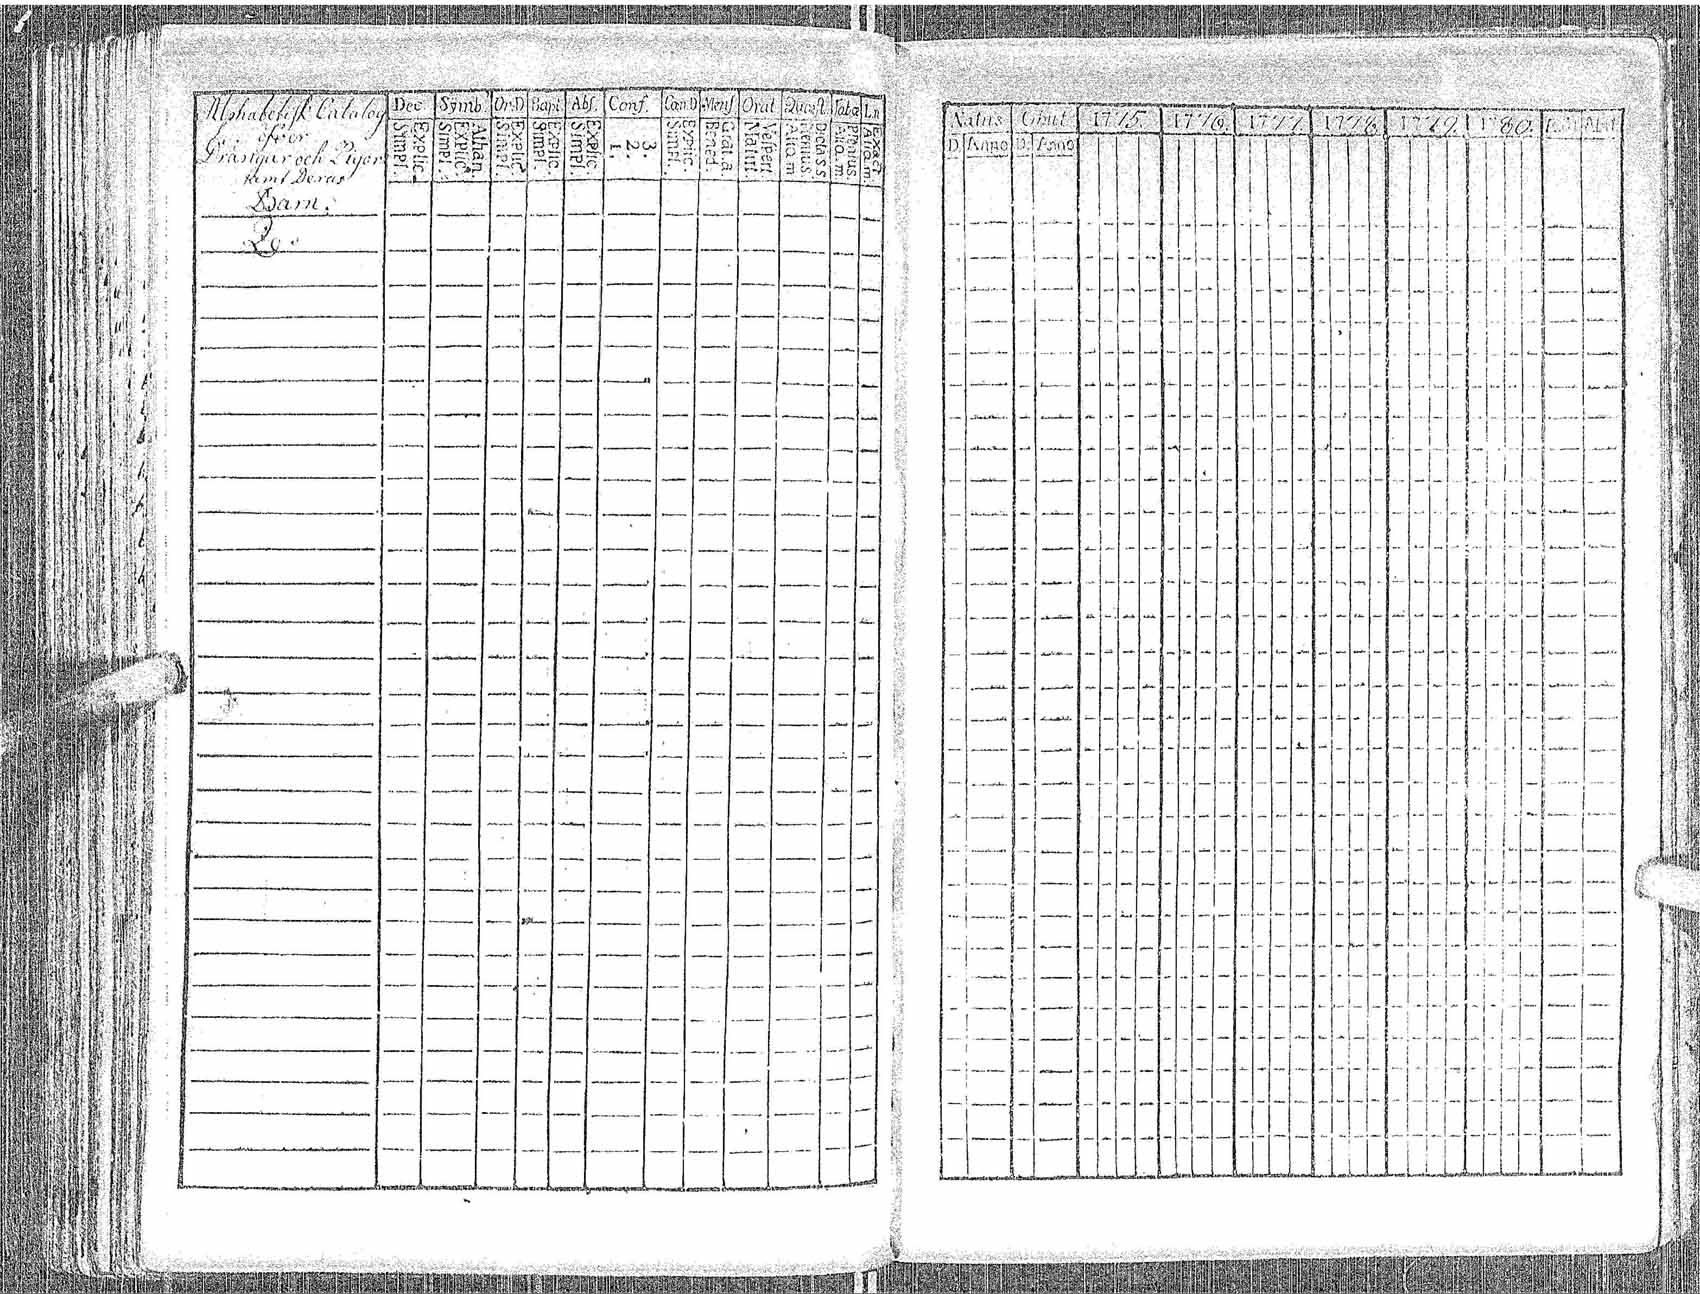 Alphabetisk Catalog
öfver
Drängar och Pigor
samt Deras
Barn.
Dec. Symb. Or.D Bapt. Abs. Conf. Cœn.D Mens. Orat. Quæst. Taba L.n
Simpl. Explic. Simpl. Explic. Athan. Simpl. Explic. Simpl. Explic. Simpl. Explic. 1. 2. 3. Simpl. Explic. Bened. Gratia Matut. Vespert. Aliq.m Exact.
Natus Obiit 1775. 1776. 1777. 1778. 1779. 1780.
D. Anno D. Anno